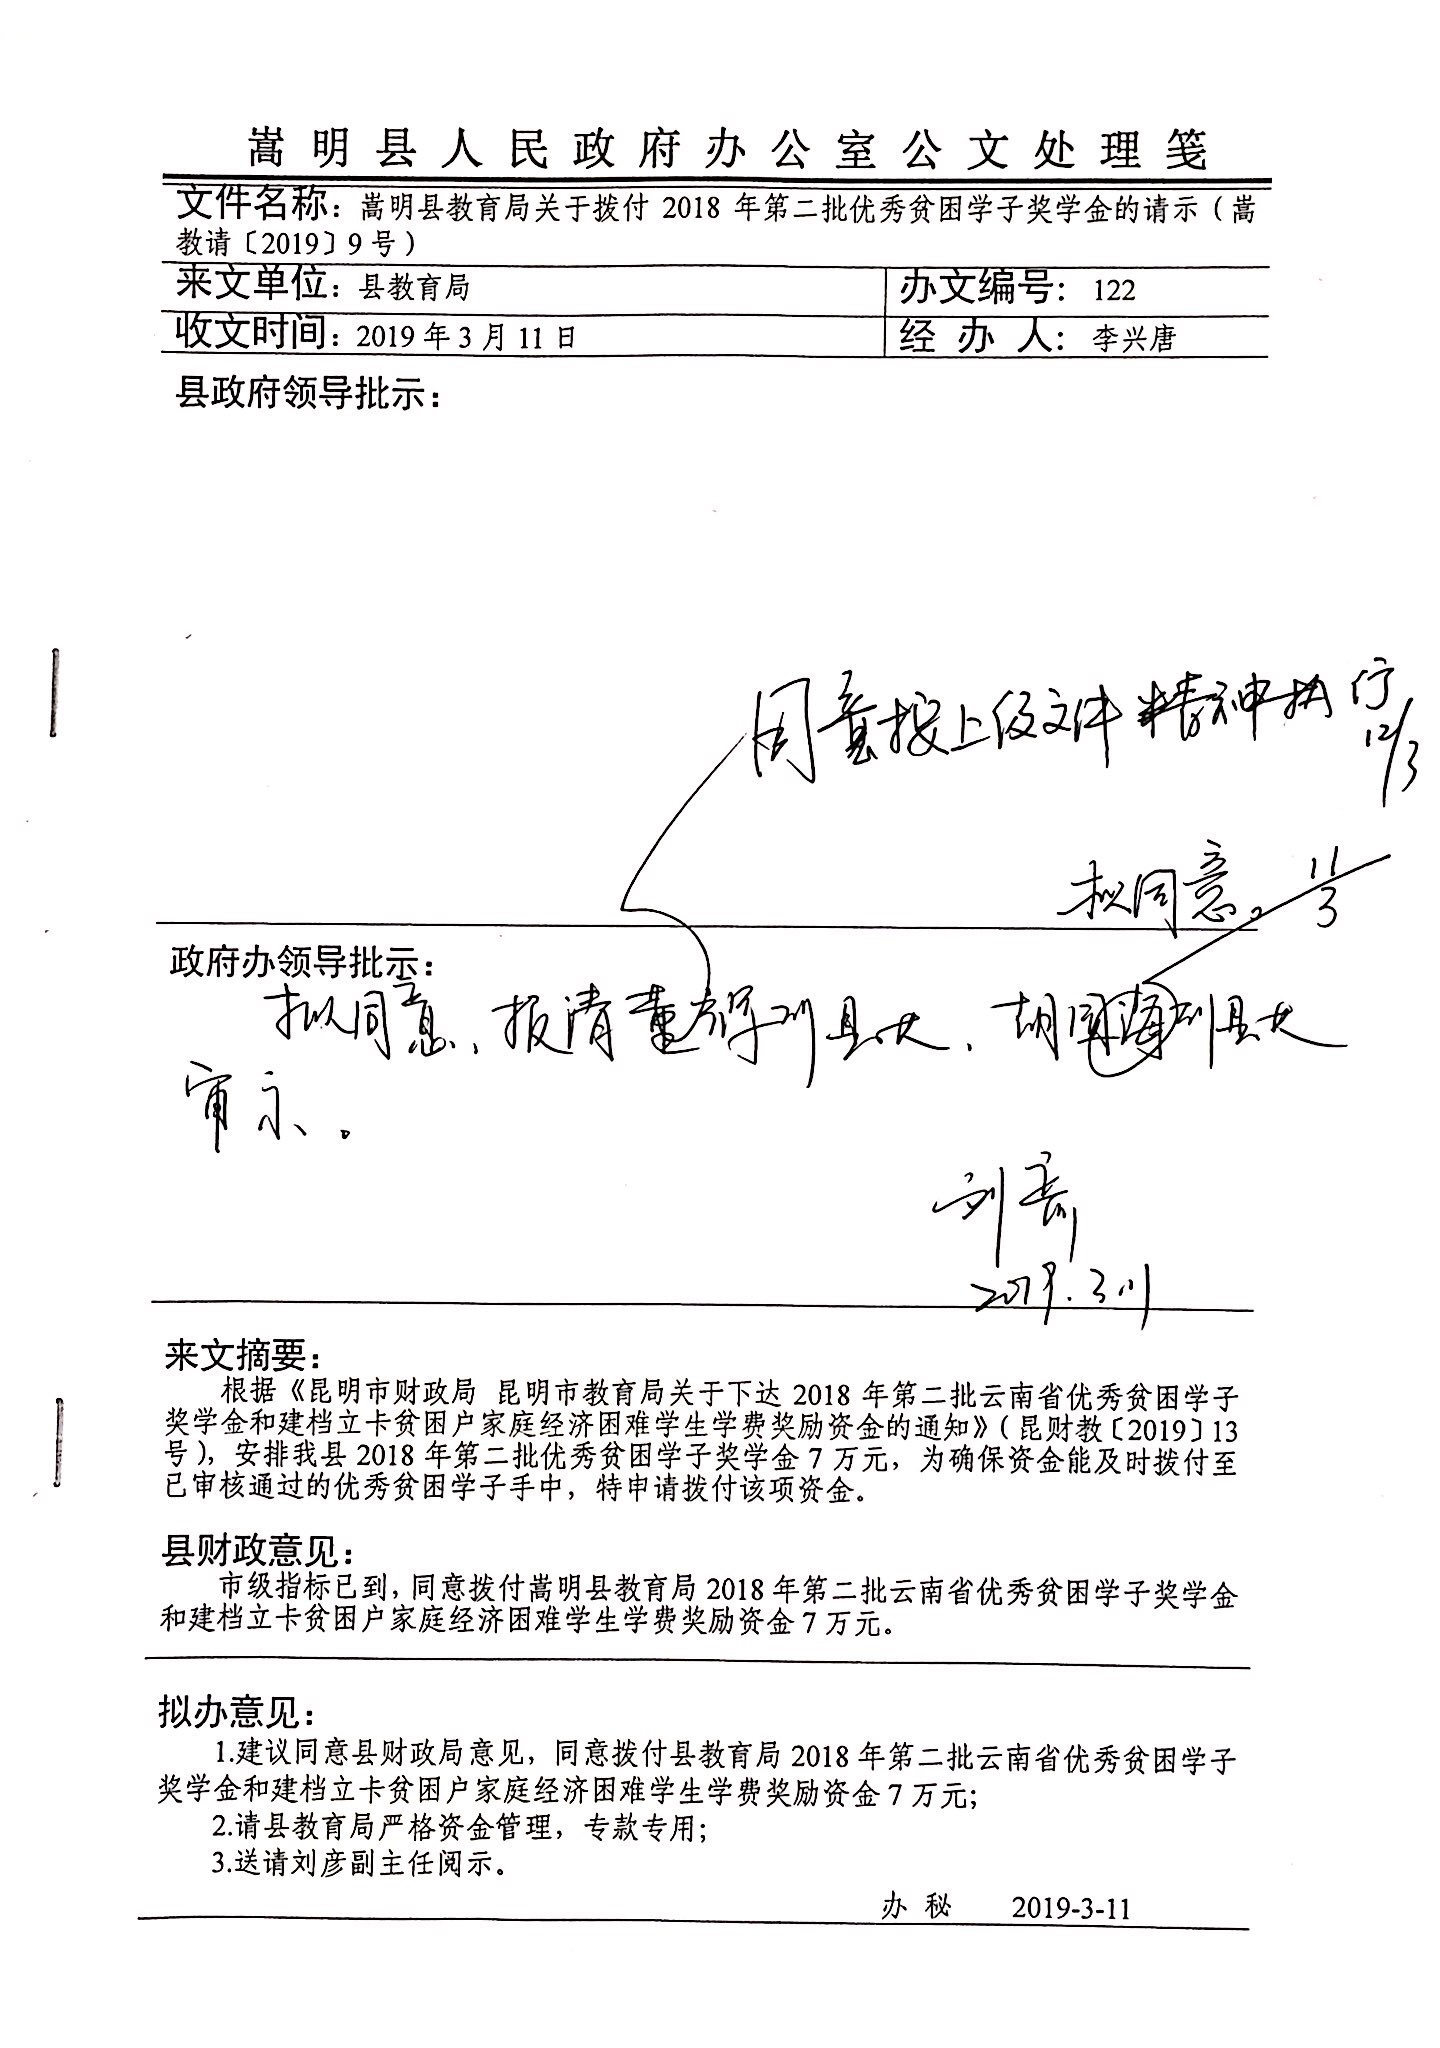 嵩明县人民政府办公室公文处理笺
文件名称：嵩明县教育局关于拨付 2018 年第二批优秀贫困学子奖学金的请示（嵩
教请〔2019〕9 号）
来文单位：县教育局
办文编号：122
收文时间：2019 年 3 月 11 日
经 办 人：李兴唐
县政府领导批示：
同意按上级文件精神执行
12/3
拟同意。 11/3
政府办领导批示：
拟同意、报请董 副县长、胡 副县长
审示。
刘彦
2019.3.11
来文摘要：
根据《昆明市财政局 昆明市教育局关于下达 2018 年第二批云南省优秀贫困学子
奖学金和建档立卡贫困户家庭经济困难学生学费奖励资金的通知》（昆财教〔2019〕13
号），安排我县 2018 年第二批优秀贫困学子奖学金 7 万元，为确保资金能及时拨付至
已审核通过的优秀贫困学子手中，特申请拨付该项资金。
县财政意见：
市级指标已到，同意拨付嵩明县教育局 2018 年第二批云南省优秀贫困学子奖学金
和建档立卡贫困户家庭经济困难学生学费奖励资金 7 万元。
拟办意见：
1.建议同意县财政局意见，同意拨付县教育局 2018 年第二批云南省优秀贫困学子
奖学金和建档立卡贫困户家庭经济困难学生学费奖励资金 7 万元；
2.请县教育局严格资金管理，专款专用；
3.送请刘彦副主任阅示。
办 秘 2019-3-11